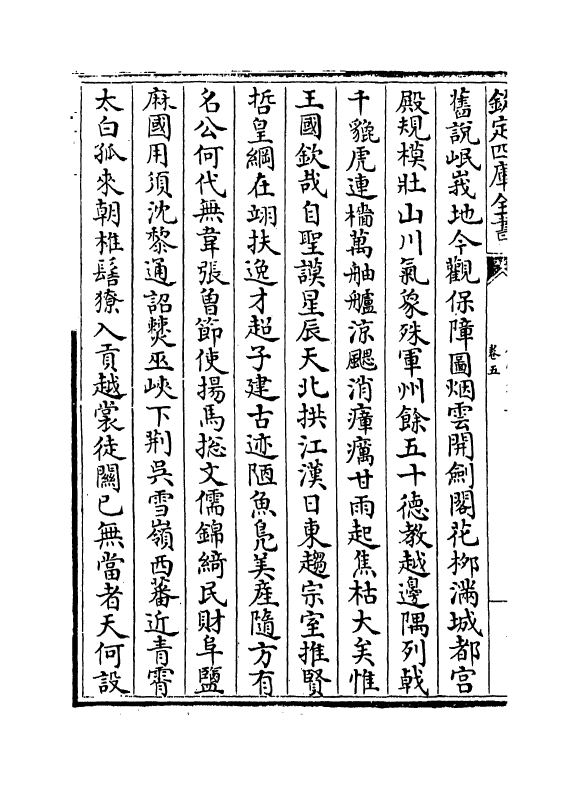 欽定四庫全書
卷五
舊說岷峩地今觀保障圖烟雲開劍閣花栁滿城都宫
殿規模壯山川氣象殊軍州餘五十德教越邊隅列戟
千貔虎連檣萬舳艫涼颸消瘴癘甘雨起焦枯大矣惟
王國欽哉自聖謨星辰天北拱江漢日東趨宗室推賢
哲皇綱在翊扶逸才超子建古迹陋魚鳬美産隨方有
名公何代無韋張曽節使揚馬揔文儒錦綺民財阜鹽
麻國用須沈黎通詔僰巫峽下荆吳雪嶺西蕃近青霄
太白孤來朝椎髻獠入貢越裳徒關已無當者天何設